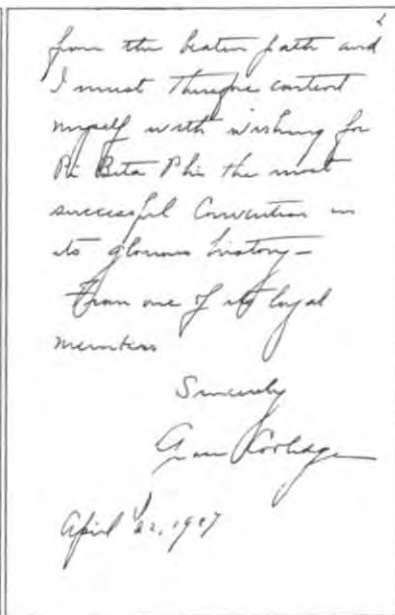 2
from the beaten path and
I must therefore content
myself with wishing for
Pi Beta Phi the most
successful Convention in
its glorious history—
From one of its loyal
members
Sincerely
Grace Coolidge
April 22, 1927